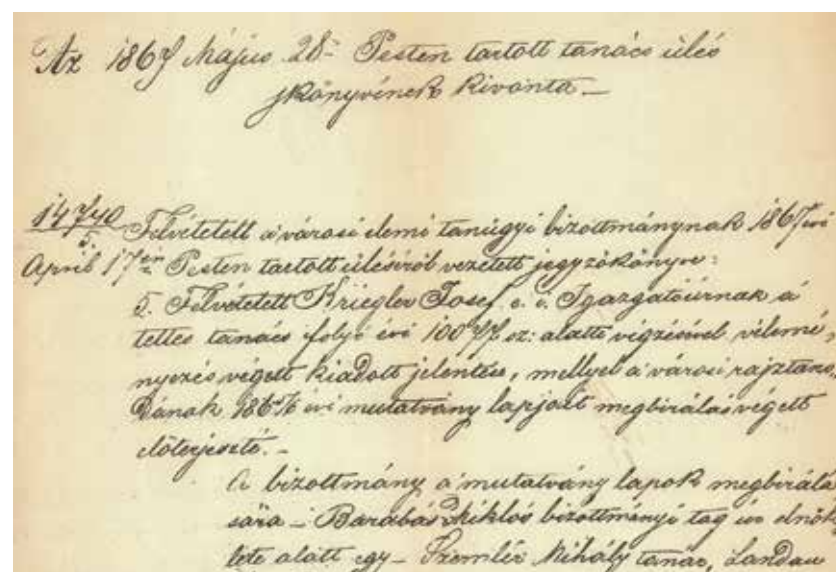 Az 1867 Május 28= Pesten tartott tanács ülés
jkönyvének kivonta –
14740
5.
Felvétetett a városi elemi tanügyi bizottmánynak 1867 évi
April 17én Pesten tartott üléséről vezetett jegyzőkönyve:
5. Felvétetett Kriegler Josef e. i. Igazgatóúrnak a
tettes tanács folyó évi 10077 sz: alatti végzésével vélemé,
nyezés végett kiadott jelentése, mellyel a városi rajztano,
dának évi mutatvány lapjait megbirálás végett
előterjeszté. –
A bizottmány a mutatvány lapok megbirálá
sára – Barabás Miklós bizottmányi tag úr elnök
lete alatt egy – Szemlér Mihály tanár, Landau